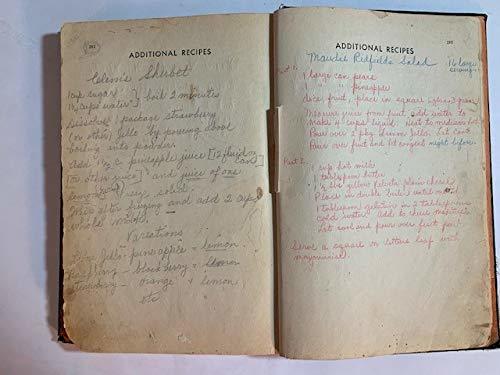 282
ADDITIONAL RECIPES
Sherbet
1 cup sugar
1½ cups water } boil 2 minutes
Dissolve 1 package strawberry
(or other) Jello by pouring above
boiling into powder.
Add 1½ c pineapple juice [12 fluid oz can]
(or other juice) and juice of one
lemon.
Whip after freezing and add 2 cups
whole milk.
Variations
Lime Jello - pineapple + lemon
- blackberry + lemon
Strawberry - orange + lemon
etc
ADDITIONAL RECIPES
283
Maudes Redfields Salad 16 large serving
Part 1
1 large can pears
1 " " pineapple
dice fruit, place in square glass
Measure juice from fruit, add water to
make 4 cups liquid. Heat to
Pour over 2 pkg. lemon Jello. Let cool.
Pour over fruit and let congeal night before.
Part 2
1 cup hot milk
1 tablespoon butter
½ lb yellow Velveta plain cheese
Place in double boiler until
1 tablespoon gelatine in 2 tablespoons
cold water. Add to cheese mixture
Let cool and pour over fruit part
Serve a square on lettuce leaf with
mayonnaise.